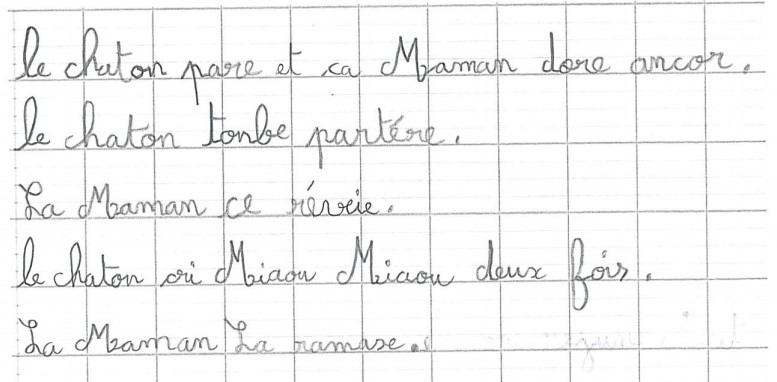 le chaton pare et ca Maman dore ancor.
le chaton tonbe partére.
La Maman ce réveie.
le chaton cri Miaou Miaou deux fois.
La Maman La ramase.